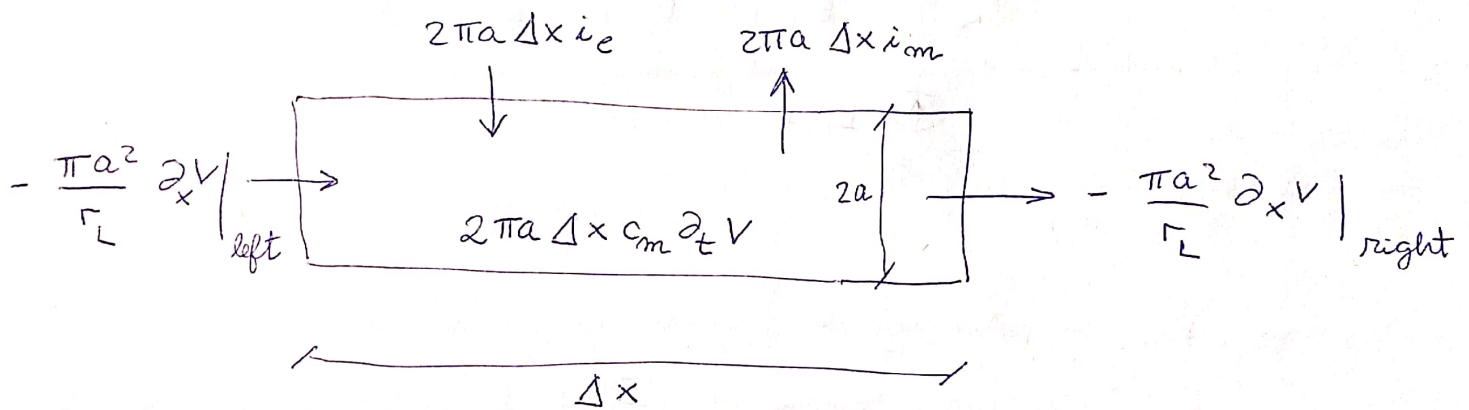 2πa Δx i_e
2πa Δx i_m
- πa²/r_L ∂_x V|_left
2πa Δx c_m ∂_t V
2a
- πa²/r_L ∂_x V|_right
Δx